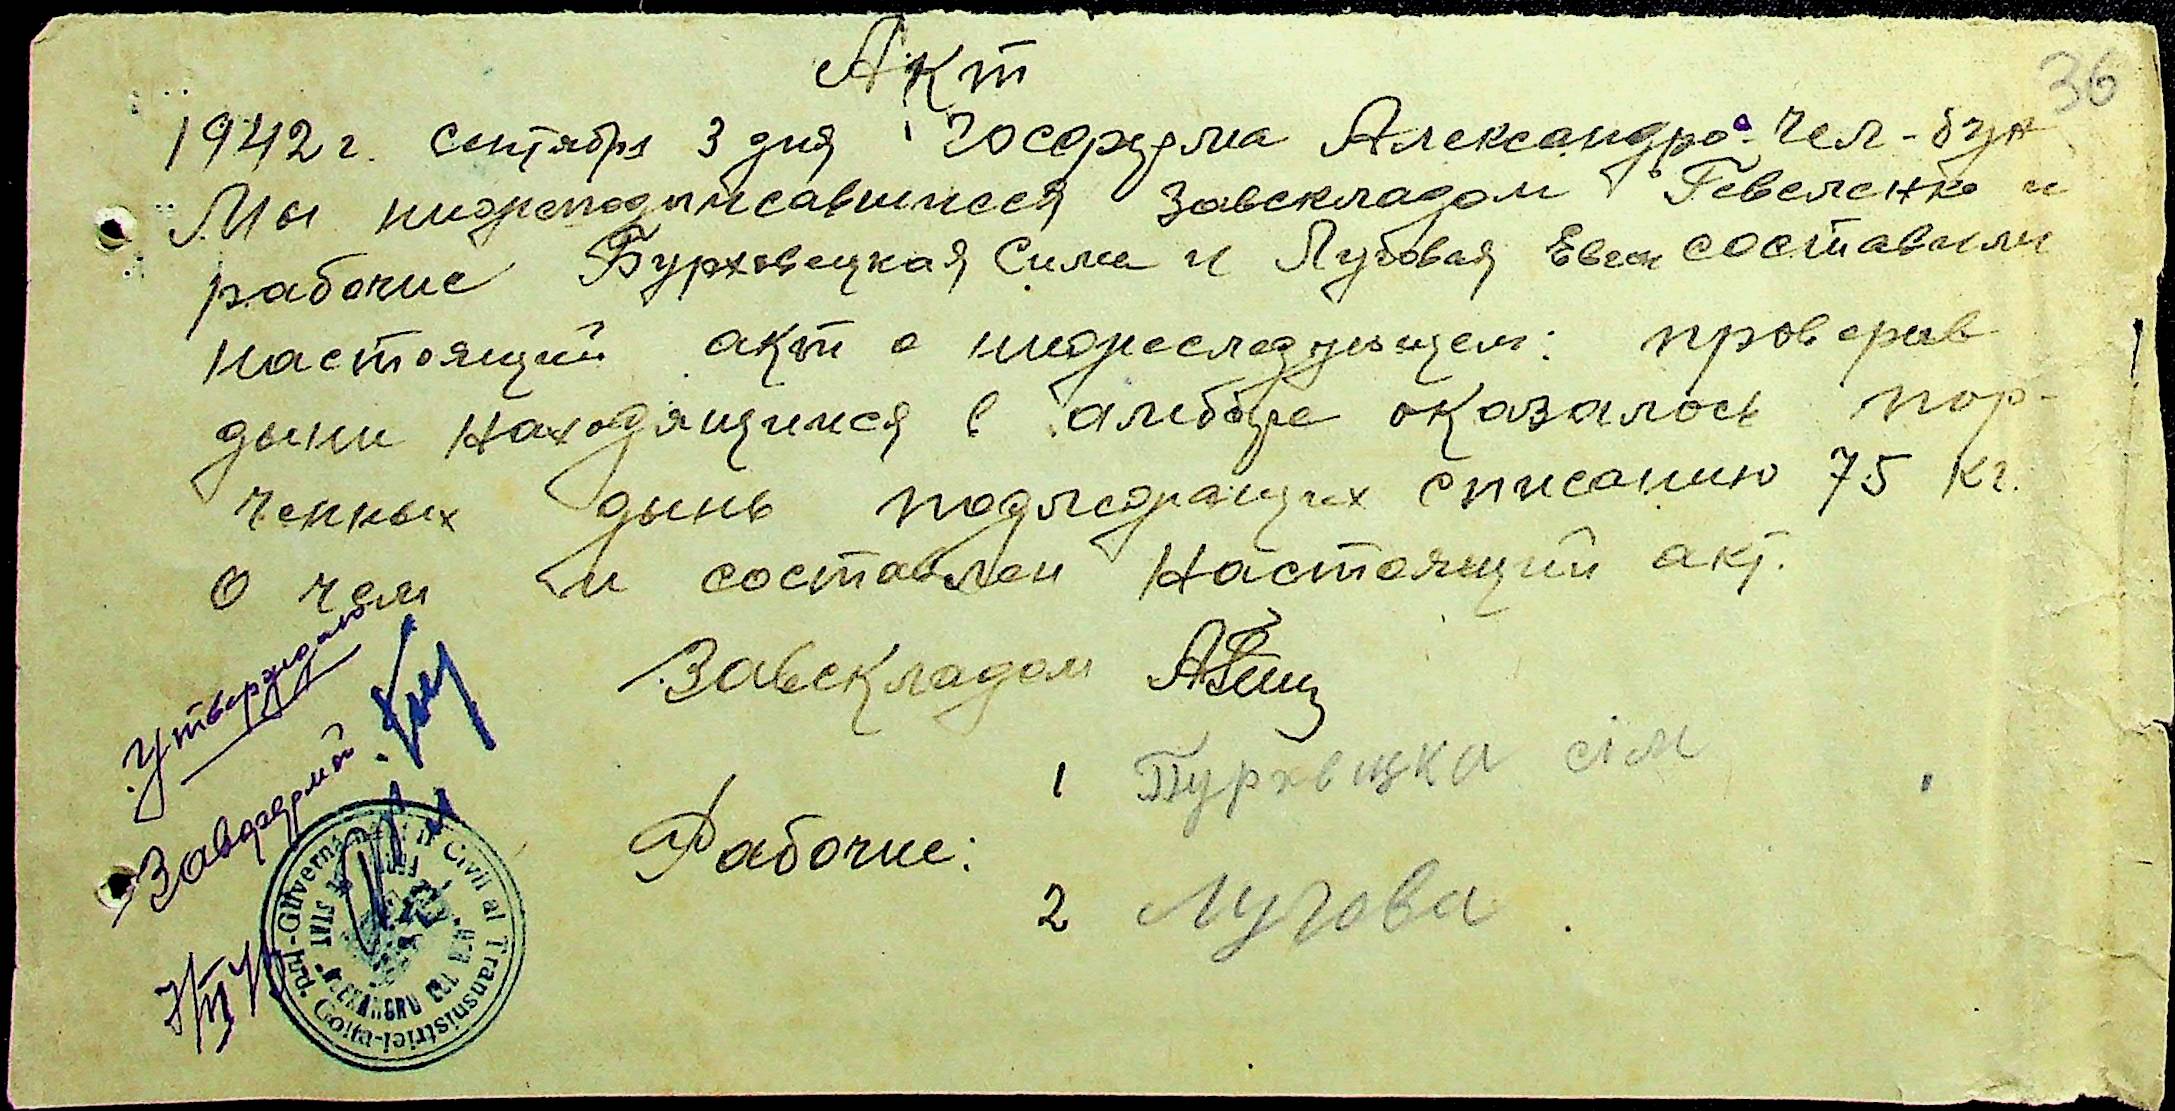 36
Акт
1942 г. сентября 3 дня Госферма Александро-Чел-бун
Мы нижеподписавшиеся завскладом Гевеленко и
рабочие Бурховецкая Сима и Луговая Евген составили
настоящий акт о нижеследующем: проверив
дыни находящиеся в амбаре оказалось пор-
ченных дынь подлежащих списанию 75 кг.
О чем и составлен настоящий акт.
Утверждаю
Завскладом
Завфермой
1 Бурхвицка сім
Рабочие:
2 Лугова
Guvernământul Civil al Transnistriei
Jud. Golta